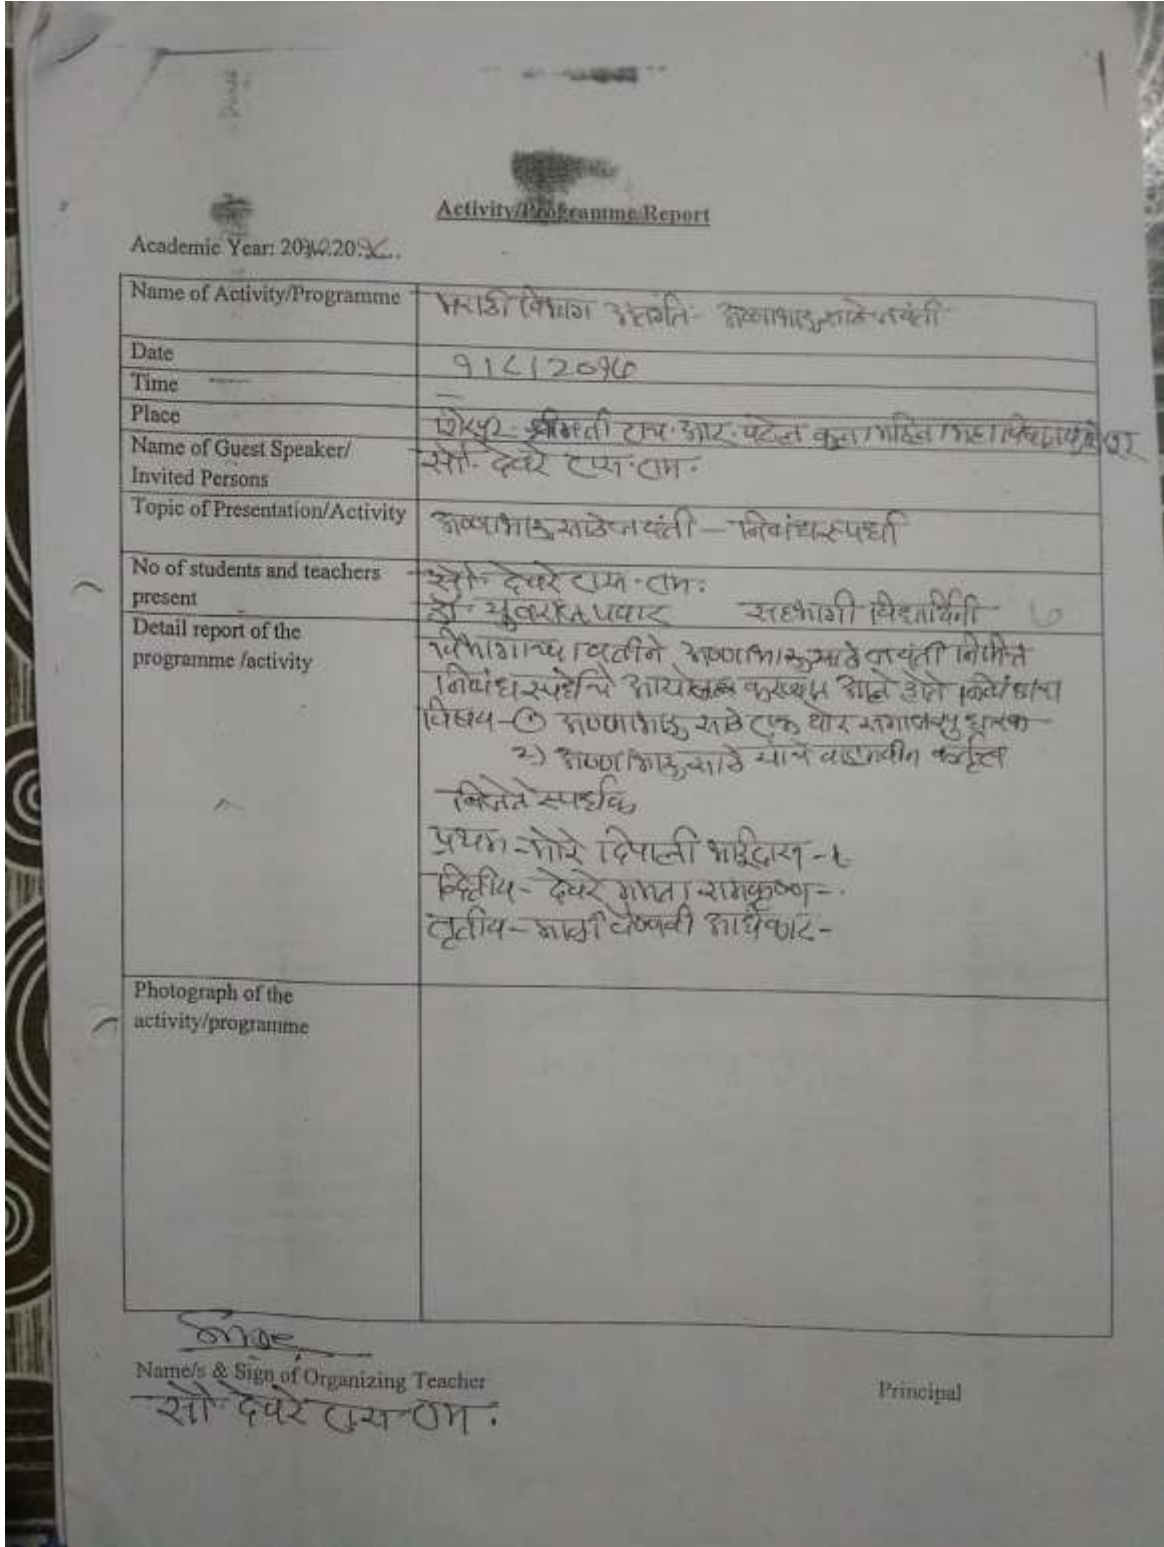 Activity/Programme Report
Academic Year: 20१७.20१८..
Name of Activity/Programme
मराठी विभाग अंतर्गत - अण्णाभाऊ साठे जयंती
Date
१।८।2०१७
Time
—
Place
शिरपूर - श्रीमती एच. आर. पटेल कला महिला महाविद्यालय शिरपूर
Name of Guest Speaker/
Invited Persons
सौ. देवरे एस. एम.
Topic of Presentation/Activity
अण्णाभाऊ साठे जयंती - निबंध स्पर्धा
No of students and teachers
present
सौ. देवरे एस. एम.
डॉ. युवराज पवार सहभागी विद्यार्थिनी ७
Detail report of the
programme /activity
विभागाच्या वतीने अण्णाभाऊ साठे जयंती निमित्त
निबंध स्पर्धेचे आयोजन करण्यात आले होते निबंधाचा
विषय - १) अण्णाभाऊ साठे एक थोर समाजसुधारक
२) अण्णाभाऊ साठे यांचे वाङ्मयीन कर्तृत्व
विजेते स्पर्धक
प्रथम - मोरे दिपाली भाईदास -
द्वितीय - देवरे ममता रामकृष्ण -
तृतीय - माळी वैष्णवी -
Photograph of the
activity/programme
Name/s & Sign of Organizing Teacher
सौ. देवरे एस. एम.
Principal